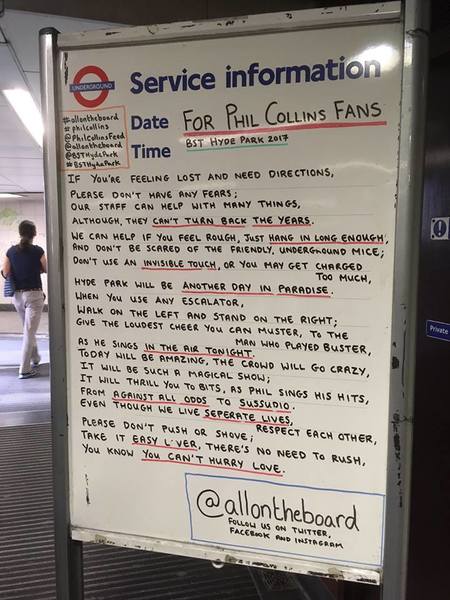 UNDERGROUND
Service information
#allontheboard
#philcollins
@PhilCollinsFeed
@allontheboard
@BSTHydePark
#BSTHydePark
Date FOR PHIL COLLINS FANS
Time BST HYDE PARK 2017
IF YOU'RE FEELING LOST AND NEED DIRECTIONS,
PLEASE DON'T HAVE ANY FEARS;
OUR STAFF CAN HELP WITH MANY THINGS,
ALTHOUGH, THEY CAN'T TURN BACK THE YEARS.
WE CAN HELP IF YOU FEEL ROUGH, JUST HANG IN LONG ENOUGH,
AND DON'T BE SCARED OF THE FRIENDLY, UNDERGROUND MICE;
DON'T USE AN INVISIBLE TOUCH, OR YOU MAY GET CHARGED
TOO MUCH,
HYDE PARK WILL BE ANOTHER DAY IN PARADISE.
WHEN YOU USE ANY ESCALATOR,
WALK ON THE LEFT AND STAND ON THE RIGHT;
GIVE THE LOUDEST CHEER YOU CAN MUSTER, TO THE
MAN WHO PLAYED BUSTER,
AS HE SINGS IN THE AIR TONIGHT.
TODAY WILL BE AMAZING, THE CROWD WILL GO CRAZY,
IT WILL BE SUCH A MAGICAL SHOW;
IT WILL THRILL YOU TO BITS, AS PHIL SINGS HIS HITS,
FROM AGAINST ALL ODDS TO SUSSUDIO.
EVEN THOUGH WE LIVE SEPERATE LIVES,
RESPECT EACH OTHER,
PLEASE DON'T PUSH OR SHOVE;
TAKE IT EASY L'VER, THERE'S NO NEED TO RUSH,
YOU KNOW YOU CAN'T HURRY LOVE.
@allontheboard
FOLLOW US ON TWITTER,
FACEBOOK AND INSTAGRAM
Private